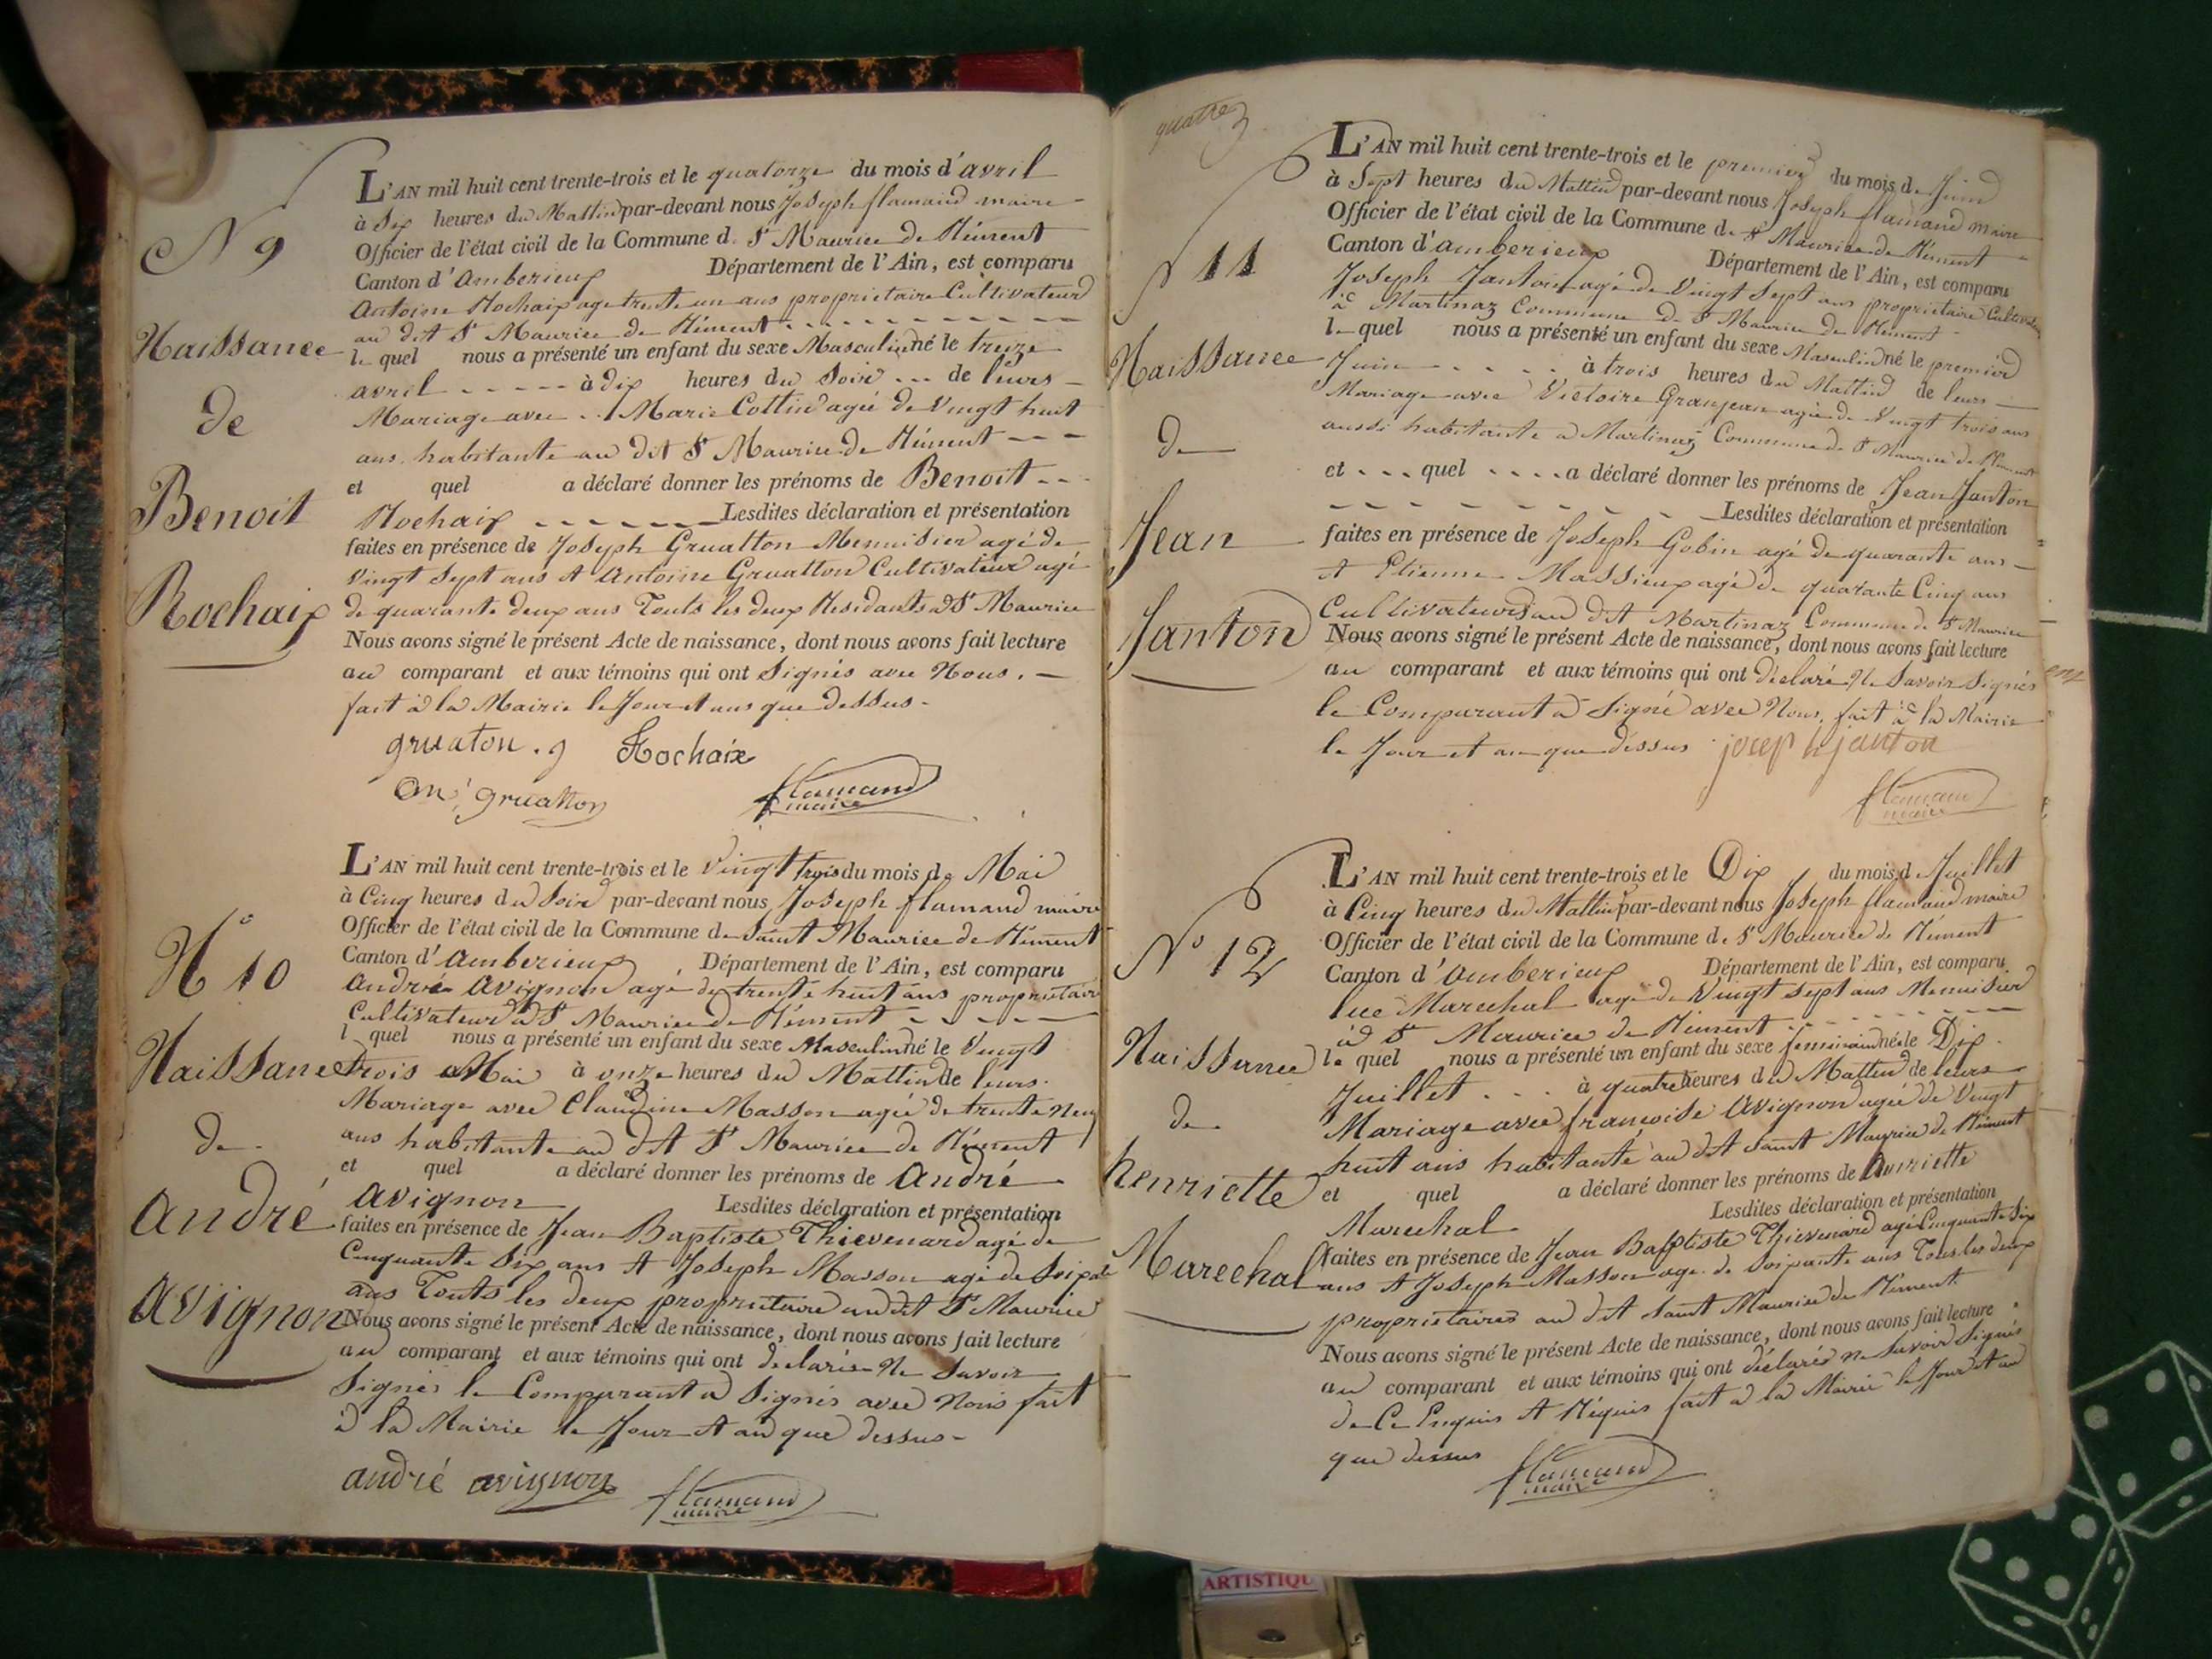 N 9
Naissance
de
Benoit
Rochaix
L'AN mil huit cent trente-trois et le quatorze du mois d'avril
à Six heures du Mattin par-devant nous Joseph flamand maire
Officier de l'état civil de la Commune d. St Maurice de Rément
Canton d'amberieux Département de l'Ain, est comparu
Antoine Rochaix agé trente un ans proprietaire Cultivateur
au dit St Maurice de Rément
le quel nous a présenté un enfant du sexe Masculin né le treize
avril à dix heures du Soir de leurs
Mariage avec Marie Cottin agée de Vingt huit
ans habitante au dit St Maurice de Rément
et quel a déclaré donner les prénoms de Benoit
Rochaix Lesdites déclaration et présentation
faites en présence de Joseph Gruatton Menuisier agé de
Vingt Sept ans et Antoine Gruatton Cultivateur agé
de quarante deux ans Touts les deux Residants à St Maurice
Nous avons signé le présent Acte de naissance, dont nous avons fait lecture
au comparant et aux témoins qui ont Signés avec Nous.
fait à la Mairie le Jour et ans que dessus
gruaton . j Rochaix
an, gruatton flamand
maire
N° 10
Naissance
de
André
Avignon
L'AN mil huit cent trente-trois et le Vingt trois du mois de Mai
à Cinq heures du Soir par-devant nous Joseph flamand maire
Officier de l'état civil de la Commune de Saint Maurice de Rément
Canton d'amberieux Département de l'Ain, est comparu
André Avignon agé de trente huit ans proprietaire
Cultivateur à St Maurice de Rément
l quel nous a présenté un enfant du sexe Masculin né le Vingt
trois Mai à onze heures du Mattin de leurs
Mariage avec Claudine Masson agée de trente neuf
ans habitante au dit St Maurice de Rément
et quel a déclaré donner les prénoms de André
Avignon Lesdites déclaration et présentation
faites en présence de Jean Baptiste Thievenard agé de
Cinquante Six ans et Joseph Masson agé de Soixate
ans Touts les deux proprietaire au dit St Maurice
Nous avons signé le présent Acte de naissance, dont nous avons fait lecture
au comparant et aux témoins qui ont declarés Ne Savoir
Signés le Comparant a Signés avec Nous fait
à la Mairie le Jour et an que dessus
andré avignon flamand
maire
quatre
N 11
Naissance
de
Jean
Janton
L'AN mil huit cent trente-trois et le premier du mois de Juin
à Sept heures du Mattin par-devant nous Joseph flamand maire
Officier de l'état civil de la Commune d. St Maurice de Rément
Canton d'amberieux Département de l'Ain, est comparu
Joseph Janton agé de Vingt Sept ans proprietaire Cultivateur
à Martinaz Commune de St Maurice de Rément
le quel nous a présenté un enfant du sexe Masculin né le premier
Juin à trois heures du Mattin de leurs
Mariage avec Victoire Granjean agée de Vingt trois ans
aussi habitante à Martinaz Commune de St Maurice de Rément
et quel a déclaré donner les prénoms de Jean Janton
Lesdites déclaration et présentation
faites en présence de Joseph Gobin agé de quarante ans
et Etienne Massieux agé de quarante Cinq ans
Cultivateurs au dit Martinaz Commune de St Maurice
Nous avons signé le présent Acte de naissance, dont nous avons fait lecture
au comparant et aux témoins qui ont déclaré Ne Savoir Signés
le Comparant a Signé avec Nous, fait à la Mairie
le Jour et an que dessus josep h janton
flamand
maire
N° 12
Naissance
de
henriette
Marechal
L'AN mil huit cent trente-trois et le Dix du mois d. Juillet
à Cinq heures du Mattin par-devant nous Joseph flamand maire
Officier de l'état civil de la Commune d. St Maurice de Rément
Canton d'amberieux Département de l'Ain, est comparu
luc Marechal agé de Vingt Sept ans Menuisier
à St Maurice de Rément
le quel nous a présenté un enfant du sexe feminin né le Dix
Juillet à quatre heures du Mattin de leurs
Mariage avec françoise Avignon agée de Vingt
huit ans habitante au dit Saint Maurice de Rément
et quel a déclaré donner les prénoms de henriette
Marechal Lesdites déclaration et présentation
faites en présence de Jean Baptiste Thievenard agé Cinquante Six
ans et Joseph Masson agé de Soixante ans Tous les deux
proprietaires au dit Saint Maurice de Rément
Nous avons signé le présent Acte de naissance, dont nous avons fait lecture
au comparant et aux témoins qui ont déclarés ne Savoir Signés
de Ce Enquis et Réquis fait à la Mairie le Jour et an
que dessus flamand
maire
ARTISTIQU